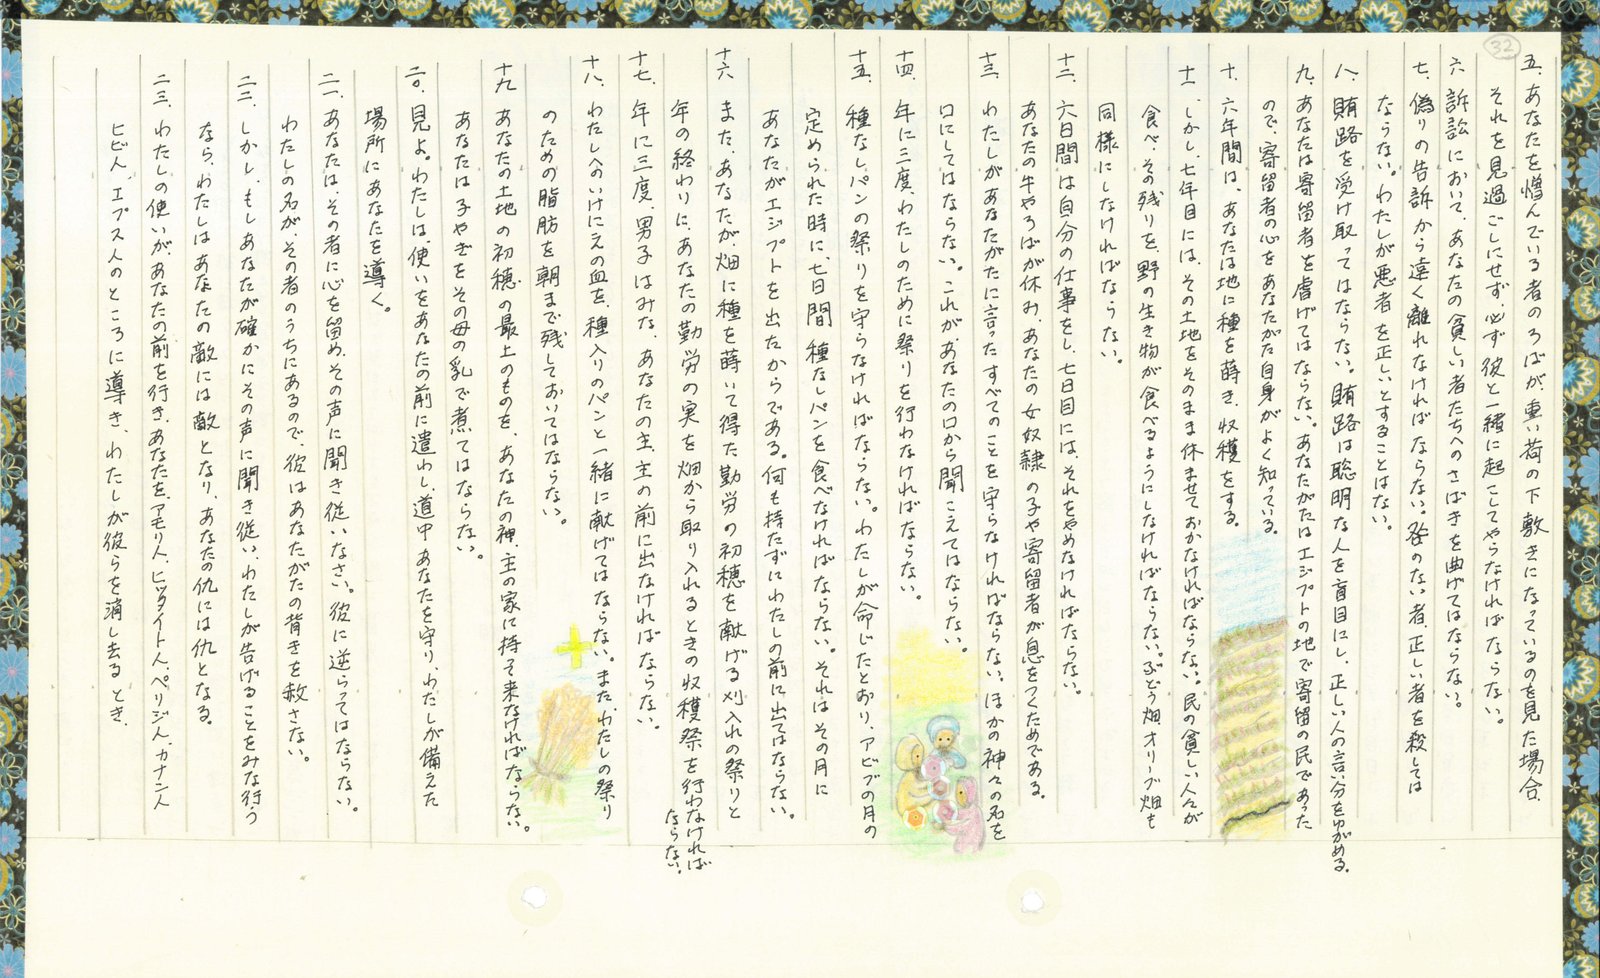 32
五、あなたを憎んでいる者のろばが、重い荷の下敷きになっているのを見た場合、
それを見過ごしにせず、必ず彼と一緒に起こしてやらなければならない。
六、訴訟において、あなたの貧しい者たちへのさばきを曲げてはならない。
七、偽りの告訴から遠く離れなければならない。咎のない者、正しい者を殺しては
ならない。わたしが悪者を正しいとすることはない。
八、賄賂を受け取ってはならない。賄賂は聡明な人を盲目にし、正しい人の言い分をゆがめる。
九、あなたは寄留者を虐げてはならない。あなたがたはエジプトの地で寄留の民であった
ので、寄留者の心をあなたがた自身がよく知っている。
十、六年間は、あなたは地に種を蒔き、収穫をする。
十一、しかし、七年目には、その土地をそのまま休ませておかなければならない。民の貧しい人々が
食べ、その残りを、野の生き物が食べるようにしなければならない。ぶどう畑、オリーブ畑も
同様にしなければならない。
十二、六日間は自分の仕事をし、七日目には、それをやめなければならない。
あなたの牛やろばが休み、あなたの女奴隷の子や寄留者が息をつくためである。
十三、わたしがあなたがたに言ったすべてのことを守らなければならない。ほかの神々の名を
口にしてはならない。これがあなたの口から聞こえてはならない。
十四、年に三度、わたしのために祭りを行わなければならない。
十五、種なしパンの祭りを守らなければならない。わたしが命じたとおり、アビブの月の
定められた時に、七日間、種なしパンを食べなければならない。それはその月に
あなたがエジプトを出たからである。何も持たずにわたしの前に出てはならない。
十六、また、あなたが畑に種を蒔いて得た勤労の初穂を献げる刈入れの祭りと
年の終わりに、あなたの勤労の実を畑から取り入れるときの収穫祭を行わなければ
ならない。
十七、年に三度、男子はみな、あなたの主、主の前に出なければならない。
十八、わたしへのいけにえの血を、種入りのパンと一緒に献げてはならない。また、わたしの祭り
のための脂肪を朝まで残しておいてはならない。
十九、あなたの土地の初穂の最上のものを、あなたの神、主の家に持って来なければならない。
あなたは子やぎをその母の乳で煮てはならない。
二〇、見よ。わたしは、使いをあなたの前に遣わし、道中あなたを守り、わたしが備えた
場所にあなたを導く。
二一、あなたは、その者に心を留め、その声に聞き従いなさい。彼に逆らってはならない。
わたしの名が、その者のうちにあるので、彼はあなたがたの背きを赦さない。
二二、しかし、もしあなたが確かにその声に聞き従い、わたしが告げることをみな行う
なら、わたしはあなたの敵には敵となり、あなたの仇には仇となる。
二三、わたしの使いが、あなたの前を行き、あなたを、アモリ人、ヒッタイト人、ペリジ人、カナン人
ヒビ人、エブス人のところに導き、わたしが彼らを消し去るとき、